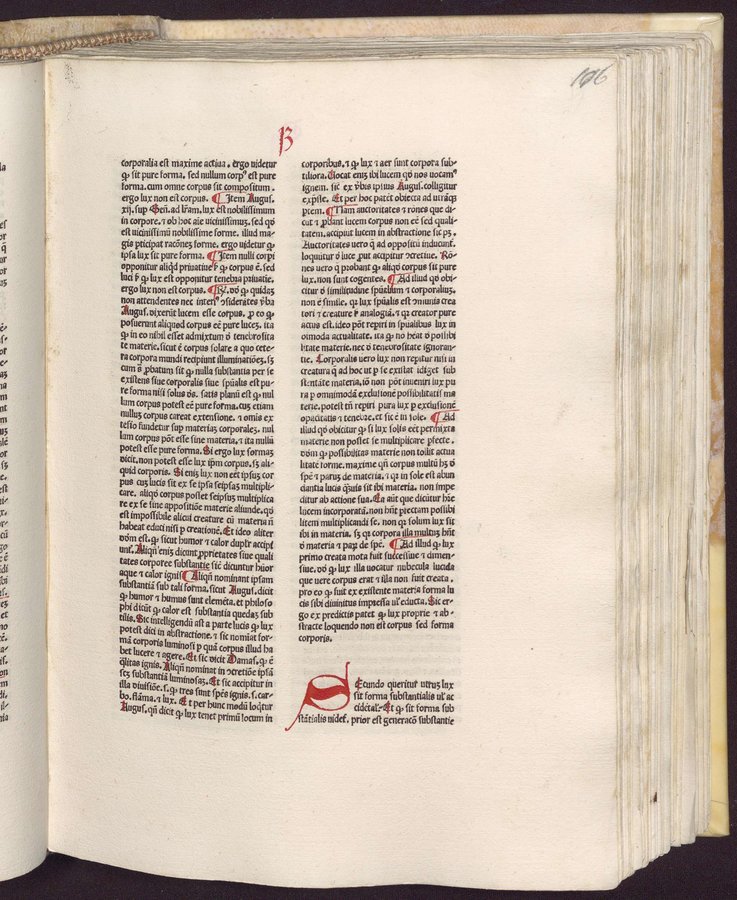 196
B
corporalia est maxime actiua. ergo uidetur
ꝙ sit pure forma. sed nullum corpꝰ est pure
forma. cum omne corpus sit compositum.
ergo lux non est corpus. ¶ Item Augus.
xij. sup Geñ. ad lr̄am. lux est nobilissimum
in corpore. ⁊ ob hoc aīe uicinissimuꝫ. sed qđ
est uicinissimū nobilissime forme. illud ma-
gis pticipat racōneꝫ forme. ergo uidetur ꝙ
ipsa lux sit pure forma. ¶ Item nulli corpi
opponitur aliqđ priuatiue ꝙ corpus ē. sed
luci ꝙ lux est opponitur tenebra priuatie.
ergo lux non est corpus. ¶ ꝙ quidaꝫ
non attendentes nec
Augus. dixerūt lucem esse corpus. eo ꝙ
posuerunt aliquod corpus eē pure luceꝫ. ita
ꝙ in eo nihil esset admixtum tenebrosita
te materie. sicut ē corpus solare a quo cete-
ra corpora mundi recipiunt illuminatiōeꝫ. sꝫ
cum sit ꝙ nulla substantia per se
existens siue corporalis siue spūalis est pu-
re forma nisi solus đs. satis planū est ꝙ nul
lum corpus potest eē pure forma. cuꝫ etiam
nulluꝫ corpus careat extensione. ⁊ omnis ex
tesio fundetur sup materiaꝫ corporaleꝫ. nul
lam corpus pōt esse sine materia. ⁊ ita nullū
potest esse pure forma. Si ergo lux formaꝫ
dicit. non potest esse lux ip̄m corpus. sꝫ ali-
quid corporis. Si eniꝫ lux non eēt ipsuꝫ cor
pus cuꝫ lucis sit ex se ipsa seipsaꝫ multipli-
care. aliqđ corpus posset seipsuꝫ multiplica
re ex se sine appositiōe materie aliunde. qđ
est impossibile alicui creature cū materia ñ
habeat educi nisi p creationē. Et ideo aliter
dōm est. ꝙ sicut humor ⁊ calor duplr̄ accipi
unt. Aliqñ eniꝫ dicunt pprietates siue quali
tates corporee substantie sic dicuntur hūor
aque ⁊ calor ignis ¶ Aliqñ nominant ipsam
substantiā sub tali forma. sicut Augus. dicit
ꝙ humor ⁊ humus sunt elemēta. et philoso
phi dicūt ꝙ calor est substantia quedaꝫ sub
tilis. Sic intelligendū est a parte lucis ꝙ lux
potest dici in abstractione. ⁊ sic nomiat for-
mā corporis luminosi p quā corpus illud ha
bet lucere ⁊ agere. Et sic dicit Damas. ꝙ ē
qlitas ignis. Aliqñ nominat in cretiōe ipsā
seꝫ substantiā luminosaꝫ. Et sic accipitur in
illa diuisiōe. s. ꝙ tres sunt spēs ignis. s. car-
bo. flāma. ⁊ lux. Et per hunc modū loqtur
Augus. qñ dicit ꝙ lux tenet primū locum in
corporibus. ⁊ ꝙ lux ⁊ aer sunt corpora sub-
tiliora. Uocat eniꝫ ibi lucem qđ nos uocamꝰ
ignem. sic ex ipsius Augus. colligitur
Et per hoc patet obiecta ad utrāqꝫ
ptem. ¶ Nam auctoritates ⁊ rōnes que di-
cut ⁊ pbant lucem corpus non eē sed quali-
tatem. accipiut lucem in abstractione sic pꝫ.
Auctoritates uero ꝙ ad oppositū inducunt.
loquūtur luce put accipitur cretiue. Rō-
nes uero ꝙ probant ꝙ aliqđ corpus sit pure
lux. non sunt cogentes. ¶ Ad illud qđ obi-
citur similitudine spūalium ⁊ corporaliuꝫ.
non ē simile. qꝛ lux spūalis est munis crea
tori ⁊ creature analogiā. ⁊ qꝛ creator pure
actus est. ideo pōt repiri in spualibus lux in
oimoda actualitate. ita ꝙ no hēat possibi
litate materie. nec tenebrositate ignoran-
tie. Corporalis uero lux non repitur nisi in
creatura ꝙ ad hoc ut p se existat idiget sub
stentāte materia. iō non pōt inueniri lux pu
ra p omnimodā exclusionē possibilitatis ma
terie. potest tñ repiri pura lux p exclusionē
opacitatis ⁊ tenebrae. et sic ē in sole. ¶ Ad
illud qđ obicitur ꝙ si lux solis eēt permixta
materie non posset se multiplicare pfecte.
dōm ꝙ possibilitas materie non tollit actua
litate forme. maxime qñ corpus multū hꝫ
spē ⁊ parū de materia. ⁊ qꝛ in sole est abun
dantia lucis quis sit ibi materia. non impe
ditur ab actione sua. Ea aūt que dicūtur hre
lucem incorporatā. non hñt pfectam possibi
litem multiplicandi se. non qꝛ solum lux sit
ibi in materia. sꝫ qꝛ corpora illa multuꝫ hñt
materia ⁊ paꝝ de spē. ¶ Ad illud ꝙ lux
primo creata mota fuit successiue ⁊ dimen-
siue. qđ ꝙ lux illa uocatur nubecula lucida
que uere corpus erat ⁊ illa non fuit creata.
pro eo ꝙ fuit ex existente materia forma lu
cis sibi diuinitus impressa ul educta. Sic er-
go ex predictis patet ꝙ lux proprie ⁊ ab-
stracte loquendo non est corpus sed forma
corporis.
SEcundo queritur utruꝫ lux
sit forma substantialis ul ac
cidētal. Et ꝙ sit forma sub
stātialis uidet. prior est generacō substantie